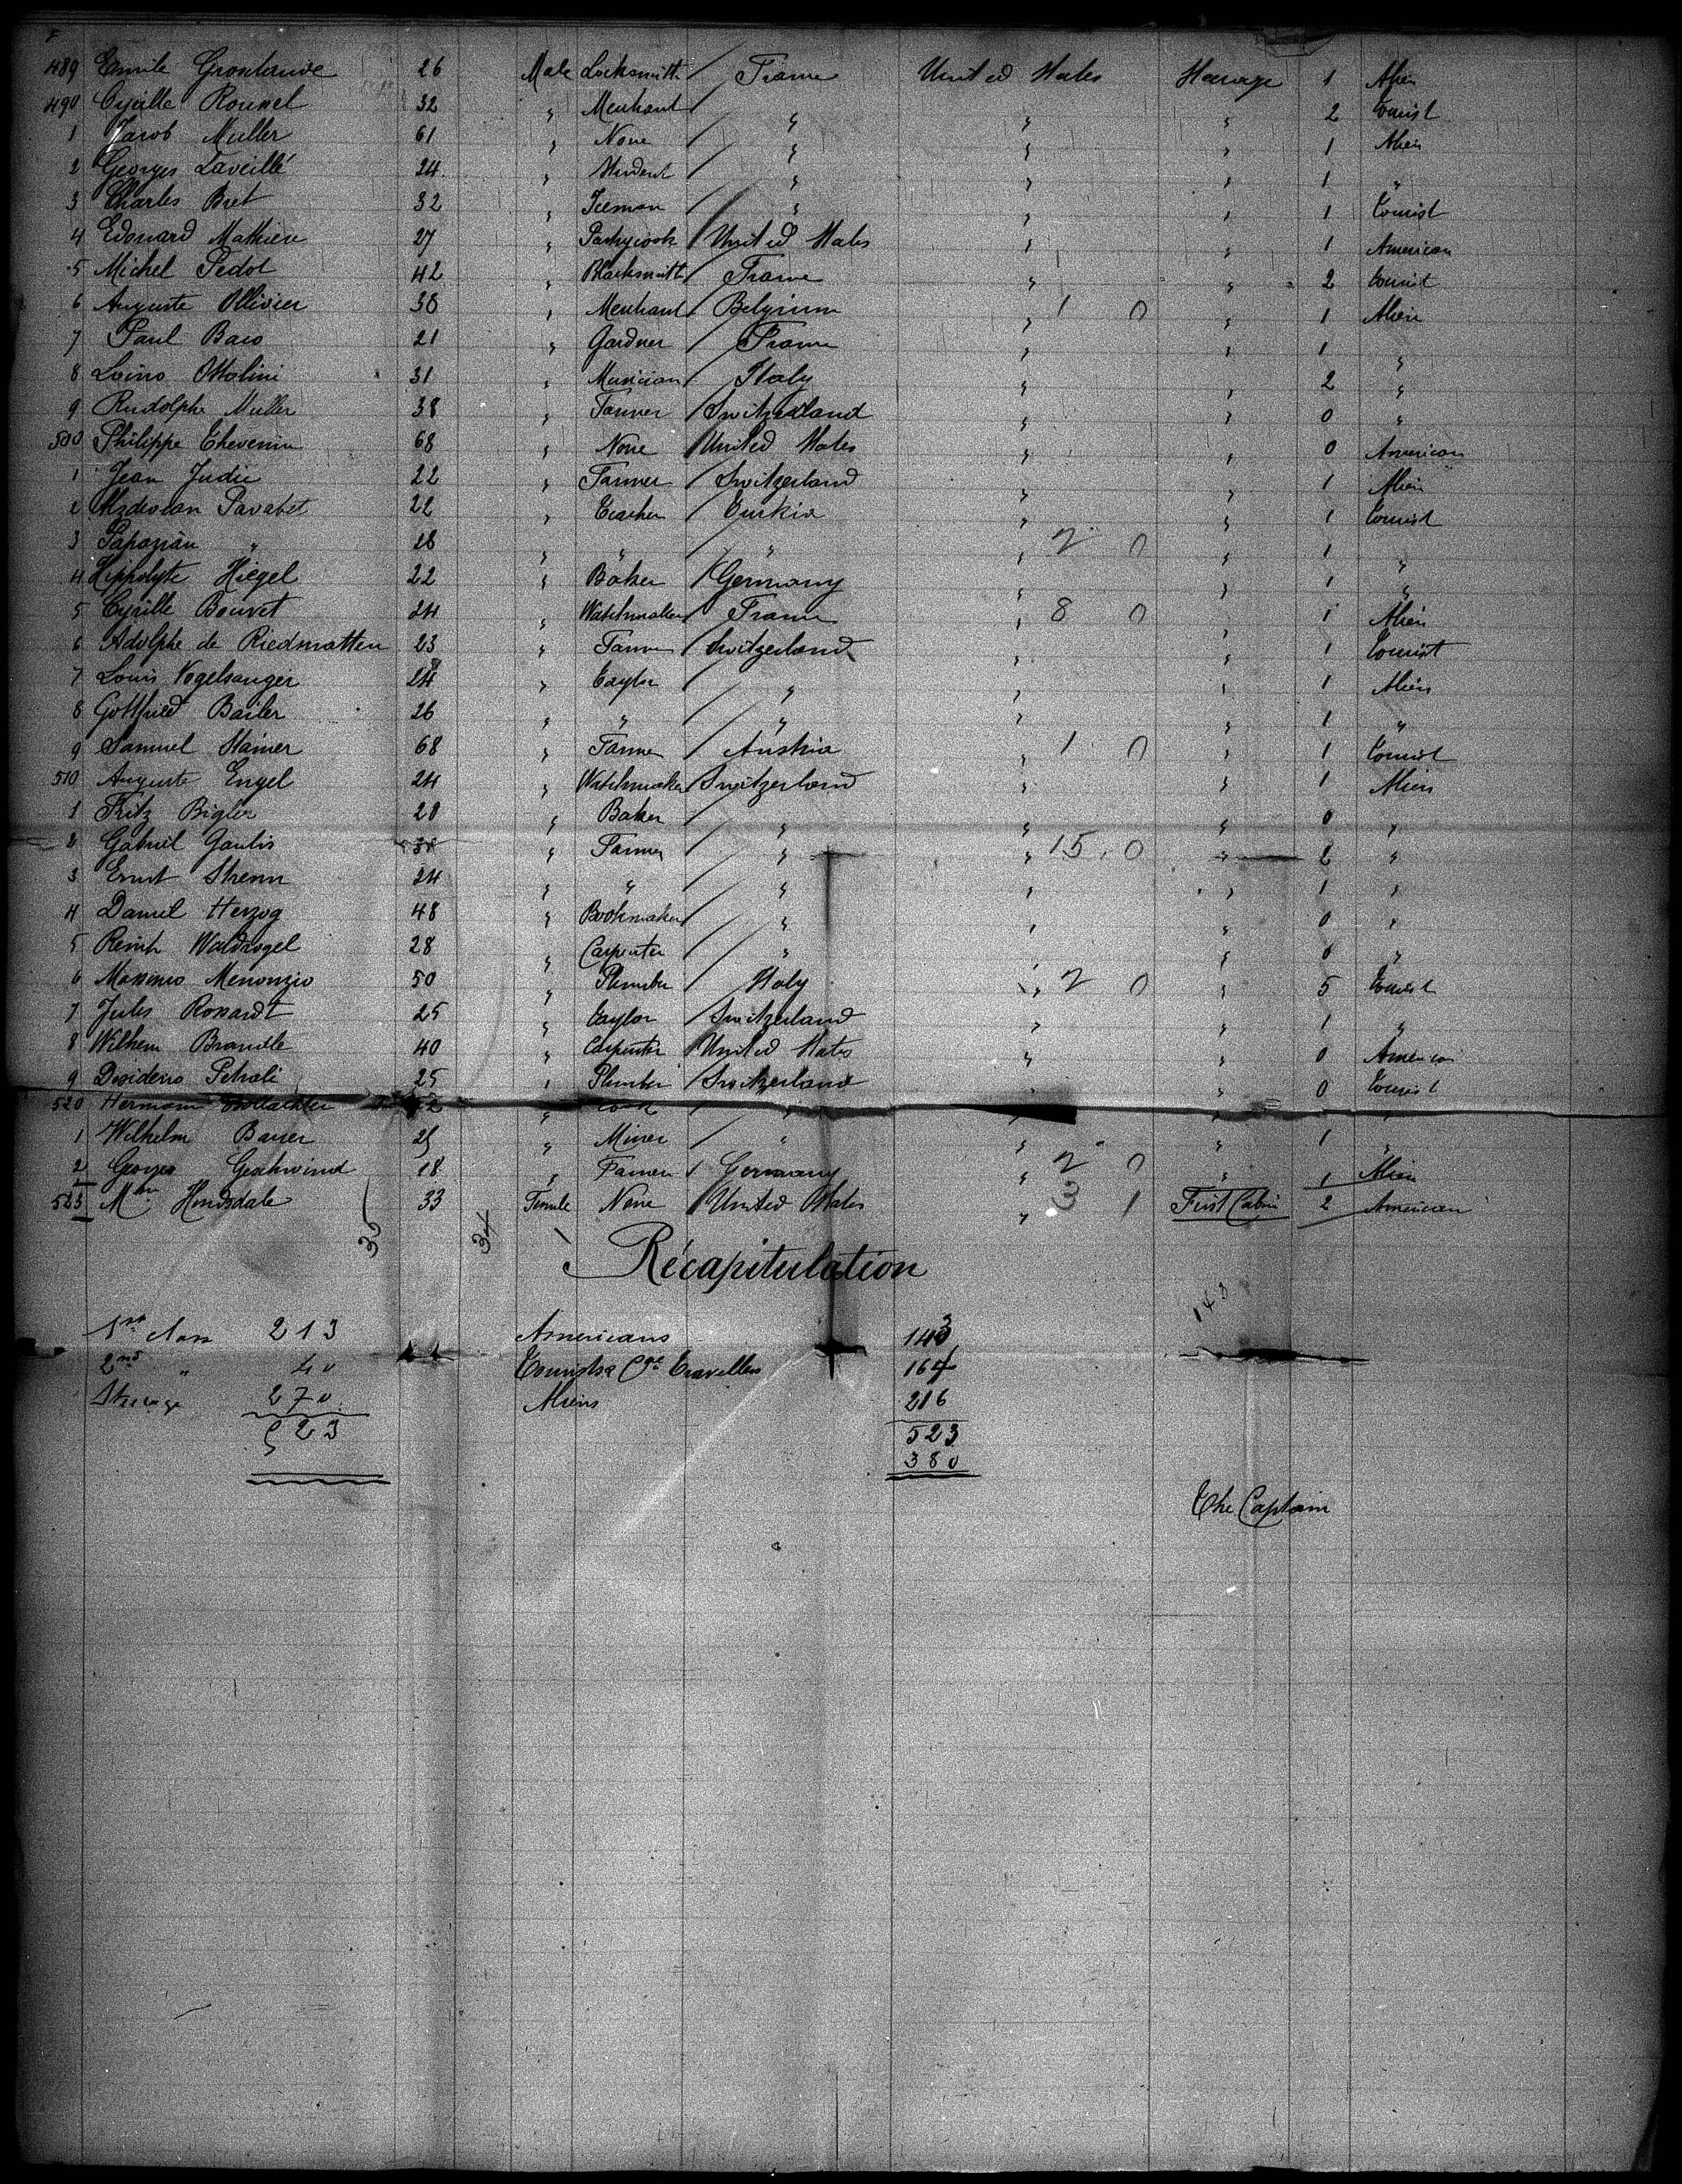 489 Emile Groslaude 26 Male Locksmith / France United States Steerage 1 Alien
490 Cyrille Roussel 32 " Merchant / " " " 2 Tourist
1 Jacob Muller 61 " None / " " " 1 Alien
2 Georges Laveillé 24 " Student / " " " 1 "
3 Charles Bret 32 " Iceman / " " " 1 Tourist
4 Edouard Mathieu 27 " Pastrycook / United States " " 1 American
5 Michel Pedot 42 " Blacksmith / France " " 2 Tourist
6 Auguste Ollivier 38 " Merchant / Belgium " 1 0 " 1 Alien
7 Paul Baco 21 " Gardner / France " " 1 "
8 Loino Ottolini 31 " Musician / Italy " " 2 "
9 Rudolphe Muller 38 " Farmer / Switzerland " " 0 "
500 Philippe Thevenin 68 " None / United States " " 0 American
1 Jean Judic 22 " Farmer / Switzerland " " 1 Alien
2 Pavabet 22 " Teacher / Turkia " " 1 Tourist
3 Papazian " 28 " " / " " 2 0 " 1 "
4 Hippolyte Hiegel 22 " Baker / Germany " " 1 "
5 Cyrille Bouvet 24 " Watchmaker / France " 8 0 " 1 Alien
6 Adolphe de Riedmatten 23 " Farmer / Switzerland " " 1 Tourist
7 Louis Vogelsanger 24 " Taylor / " " " 1 Alien
8 Gottfried Bailer 26 " " / " " " 1 "
9 Samuel Stainer 68 " Farmer / Austria " 1 0 " 1 Tourist
510 Auguste Engel 24 " Watchmaker / Switzerland " " 1 Alien
1 Fritz Bigler 20 " Baker / " " " 0 "
2 Gabriel Gaulis " Farmer / " " 15 0 " 2 "
3 Ernst Strenn 24 " " / " " " 1 "
4 Daniel Herzog 48 " Bookmaker / " " " 0 "
5 Reinh Waldvogel 28 " Carpenter / " " " 0 "
6 Menonzio 50 " Plumber / Italy " 2 0 " 5 Tourist
7 Jules Rossardt 25 " Taylor / Switzerland " " 1 "
8 Wilhem Brandle 40 " Carpenter / United States " " 0 American
9 Desiderio Petrali 25 " Plumber / Switzerland " " 0 Tourist
520 Hermann " Cook / " " " "
1 Wilhelm Bauer 25 " Miner / " " " 1 "
2 Georges Geschwind 18 " Farmer / Germany " 2 0 " 1 Alien
523 Hindsdale 33 Female None / United States " 3 1 First Cabin 2 American
30 34
Récapitulation
143
1st class 213 Americans 143
2nd " 40 Tourists & Travellers 164
Steerage 270 Aliens 216
523 523
380
The Captain